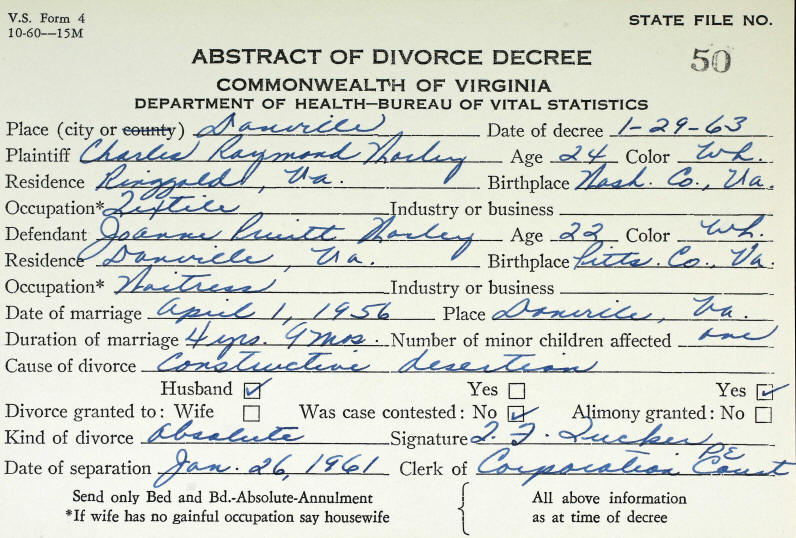 V.S. Form 4
10-60—15M
STATE FILE NO.
50
ABSTRACT OF DIVORCE DECREE
COMMONWEALTH OF VIRGINIA
DEPARTMENT OF HEALTH—BUREAU OF VITAL STATISTICS
Place (city or county) Danville Date of decree 1-29-63
Plaintiff Charles Raymond Age 24 Color Wh.
Residence Ringgold, Va. Birthplace Co., Va.
Occupation* Textile Industry or business
Defendant Joanne Pruitt Age 22 Color Wh.
Residence Danville, Va. Birthplace Pitts. Co., Va.
Occupation* Waitress Industry or business
Date of marriage April 1, 1956 Place Danville, Va.
Duration of marriage 4 yrs. 9 mos. Number of minor children affected one
Cause of divorce Constructive desertion
Husband ☑ Yes ☐ Yes ☑
Divorce granted to: Wife ☐ Was case contested: No ☑ Alimony granted: No ☐
Kind of divorce Absolute Signature T. F. Tucker
Date of separation Jan. 26, 1961 Clerk of Corporation Court
Send only Bed and Bd.-Absolute-Annulment All above information
*If wife has no gainful occupation say housewife as at time of decree